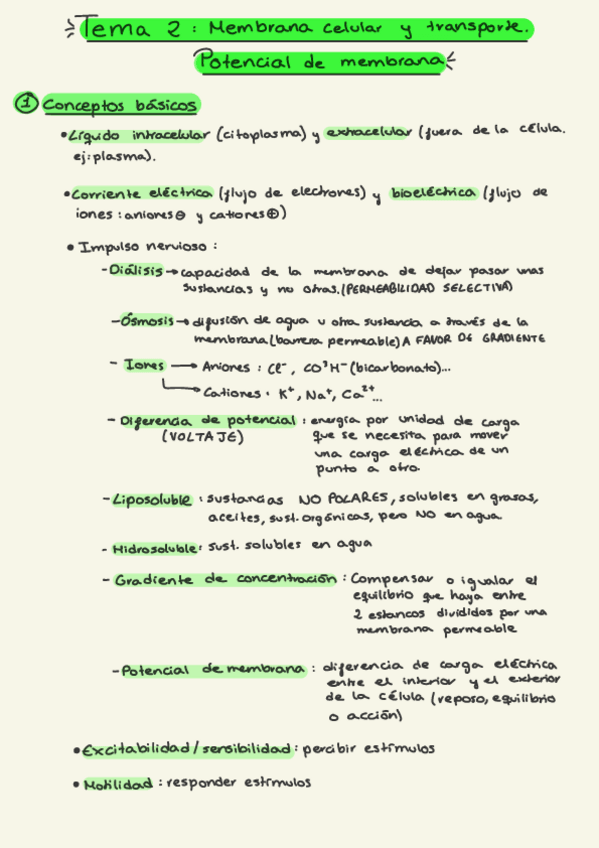 Tema 2: Membrana celular y transporte.
Potencial de membrana
① Conceptos básicos
• Líquido intracelular (citoplasma) y extracelular (fuera de la célula.
ej: plasma).
• Corriente eléctrica (flujo de electrones) y bioeléctrica (flujo de
iones: aniones⊖ y cationes⊕)
• Impulso nervioso:
- Diálisis → capacidad de la membrana de dejar pasar unas
sustancias y no otras. (PERMEABILIDAD SELECTIVA)
- Ósmosis → difusión de agua u otra sustancia a través de la
membrana (barrera permeable) A FAVOR DE GRADIENTE
- Iones → Aniones: Cl⁻, CO³H⁻ (bicarbonato)...
→ Cationes: K⁺, Na⁺, Ca²⁺...
- Diferencia de potencial: energía por unidad de carga
(VOLTAJE) que se necesita para mover
una carga eléctrica de un
punto a otro.
- Liposoluble: sustancias NO POLARES, solubles en grasas,
aceites, sust. orgánicas, pero NO en agua.
- Hidrosoluble: sust. solubles en agua
- Gradiente de concentración: Compensar o igualar el
equilibrio que haya entre
2 estancos divididos por una
membrana permeable
- Potencial de membrana: diferencia de carga eléctrica
entre el interior y el exterior
de la célula (reposo, equilibrio
o acción)
• Excitabilidad/sensibilidad: percibir estímulos
• Motilidad: responder estímulos